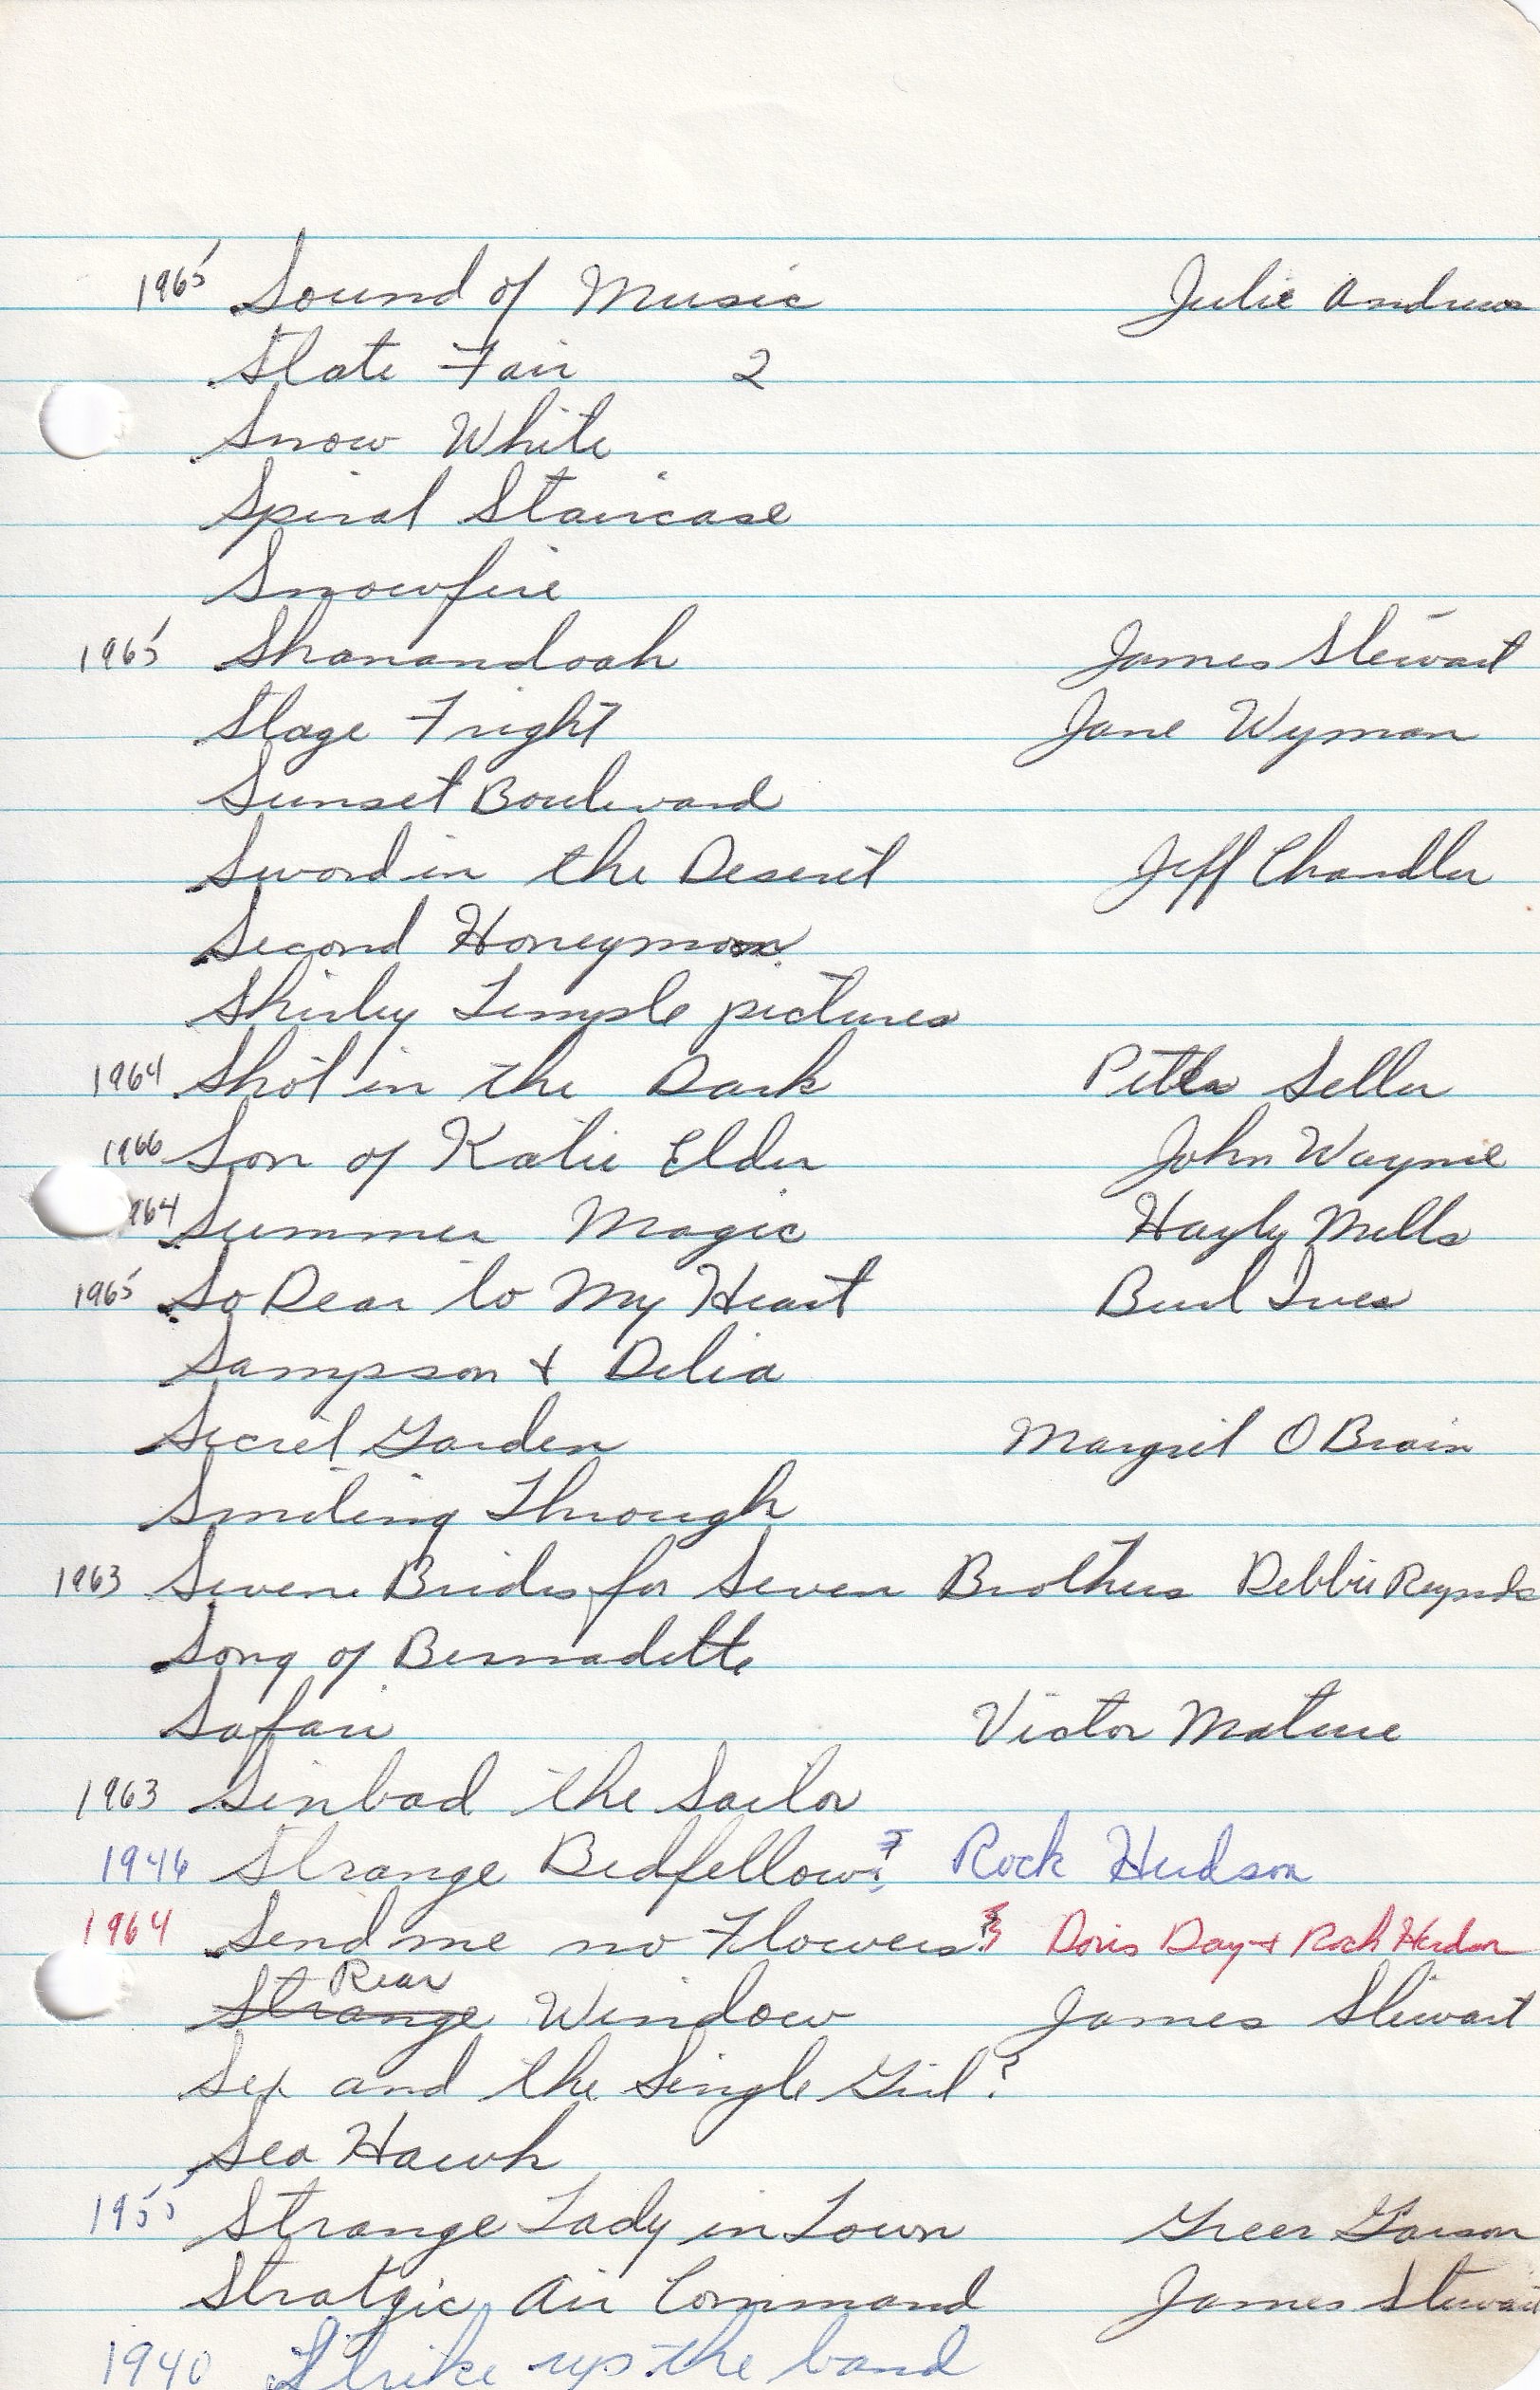 1965 Sound of Music Julie Andrews
State Fair 2
Snow White
Spiral Staircase
Snowfire
1965 Shanandoah James Stewart
Stage Fright Jane Wyman
Sunset Boulevard
Sword in the Desert Jeff Chandler
Second Honeymoon
Shirley Temple pictures
1964 Shot in the Dark Seller
1966 Son of Katie Elder John Wayne
964 Summer Magic Hayly Mills
1965 So Dear to My Heart Burl Ives
Sampson & Delia
Secret Garden Margret O Brain
Smiling Through
1963 Seven Brides for Seven Brothers Debbie Reynolds
Song of Bernadette
Safari Victor Mature
1963 Sinbad the Sailor
1946 Strange Bedfellows? Rock Hudson
1964 Send me no Flowers? Doris Day & Rock Hudson
Rear
Strange Window James Stewart
Sex and the Single Girl?
Sea Hawk
1955 Strange Lady in Town Greer Garson
Stratgic Air Command James Stewart
1940 Strike up the band